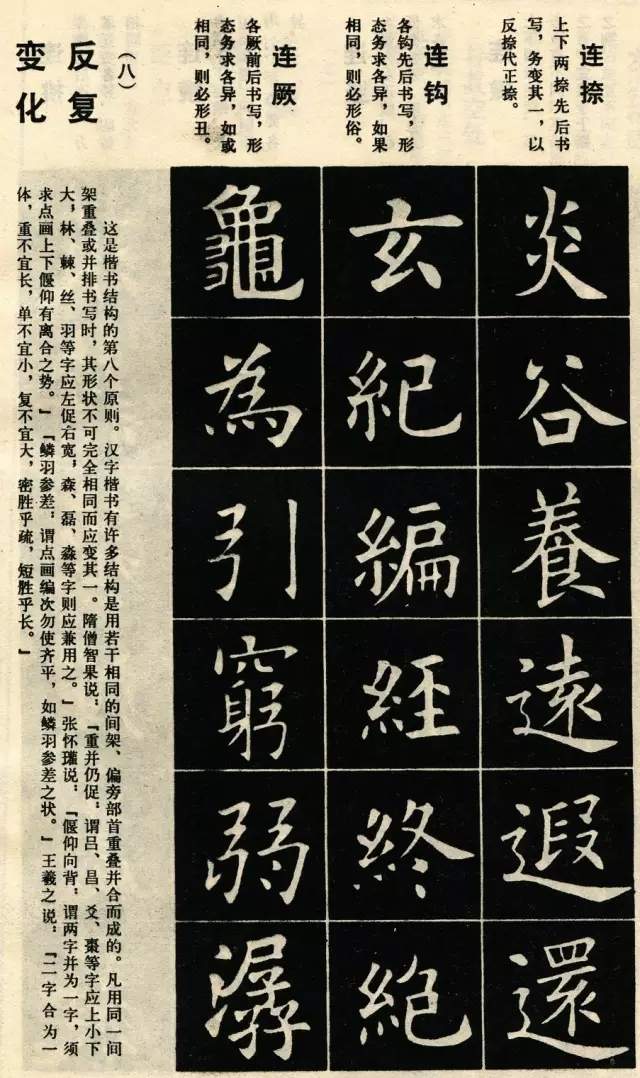 连捺
上下两捺先后书
写，务变其一，以
反捺代正捺。
炎谷養遠遐還
连钩
各钩先后书写，形
态务求各异，如果
相同，则必形俗。
玄紀編經終絕
连厥
各厥前后书写，形
态务求各异，如或
相同，则必形丑。
龜為引窮弱潺
（八）
反复
变化
这是楷书结构的第八个原则。汉字楷书有许多结构是用若干相同的间架、偏旁部首重叠并合而成的。凡用同一间
架重叠或并排书写时，其形状不可完全相同而应变其一。隋僧智果说：「重并仍促，谓吕、昌、爻、棗等字应上小下
大，林、棘、丝、羽等字应左促右宽，森、磊、淼等字则应兼用之。」张怀瓘说：「偃仰向背，谓两字并为一字，须
求点画上下偃仰有离合之势。」「鳞羽参差，谓点画编次勿使齐平，如鳞羽参差之状。」王羲之说：「二字合为一
体，重不宜长，单不宜小，复不宜大，密胜乎疏，短胜乎长。」